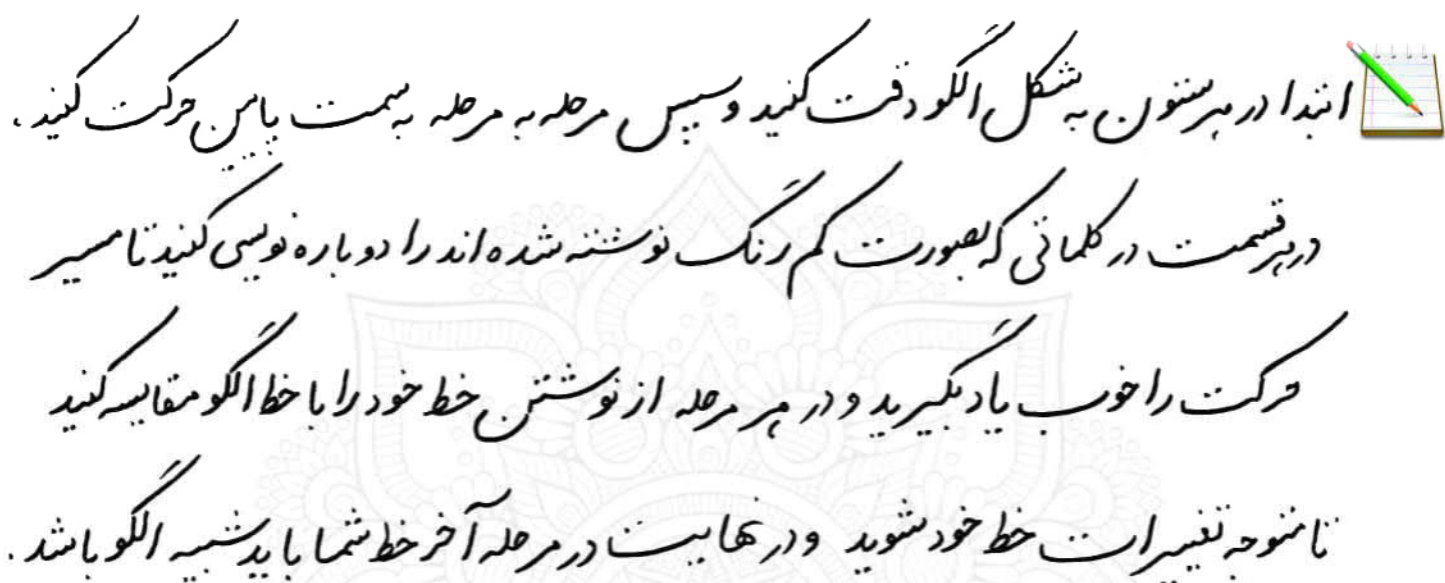 ابتدا در هر ستون به شکل الگو دقت کنید و سپس مرحله به مرحله به سمت پایین حرکت کنید .
در هر قسمت در کلماتی که بصورت کم رنگ نوشته شده اند را دوباره نویسی کنید تا مسیر
حرکت را خوب یاد بگیرید و در هر مرحله از نوشتن خط خود را با خط الگو مقایسه کنید
تا متوجه تغییرات خط خود شوید و در نهایت در مرحله آخر خط شما باید شبیه الگو باشد .